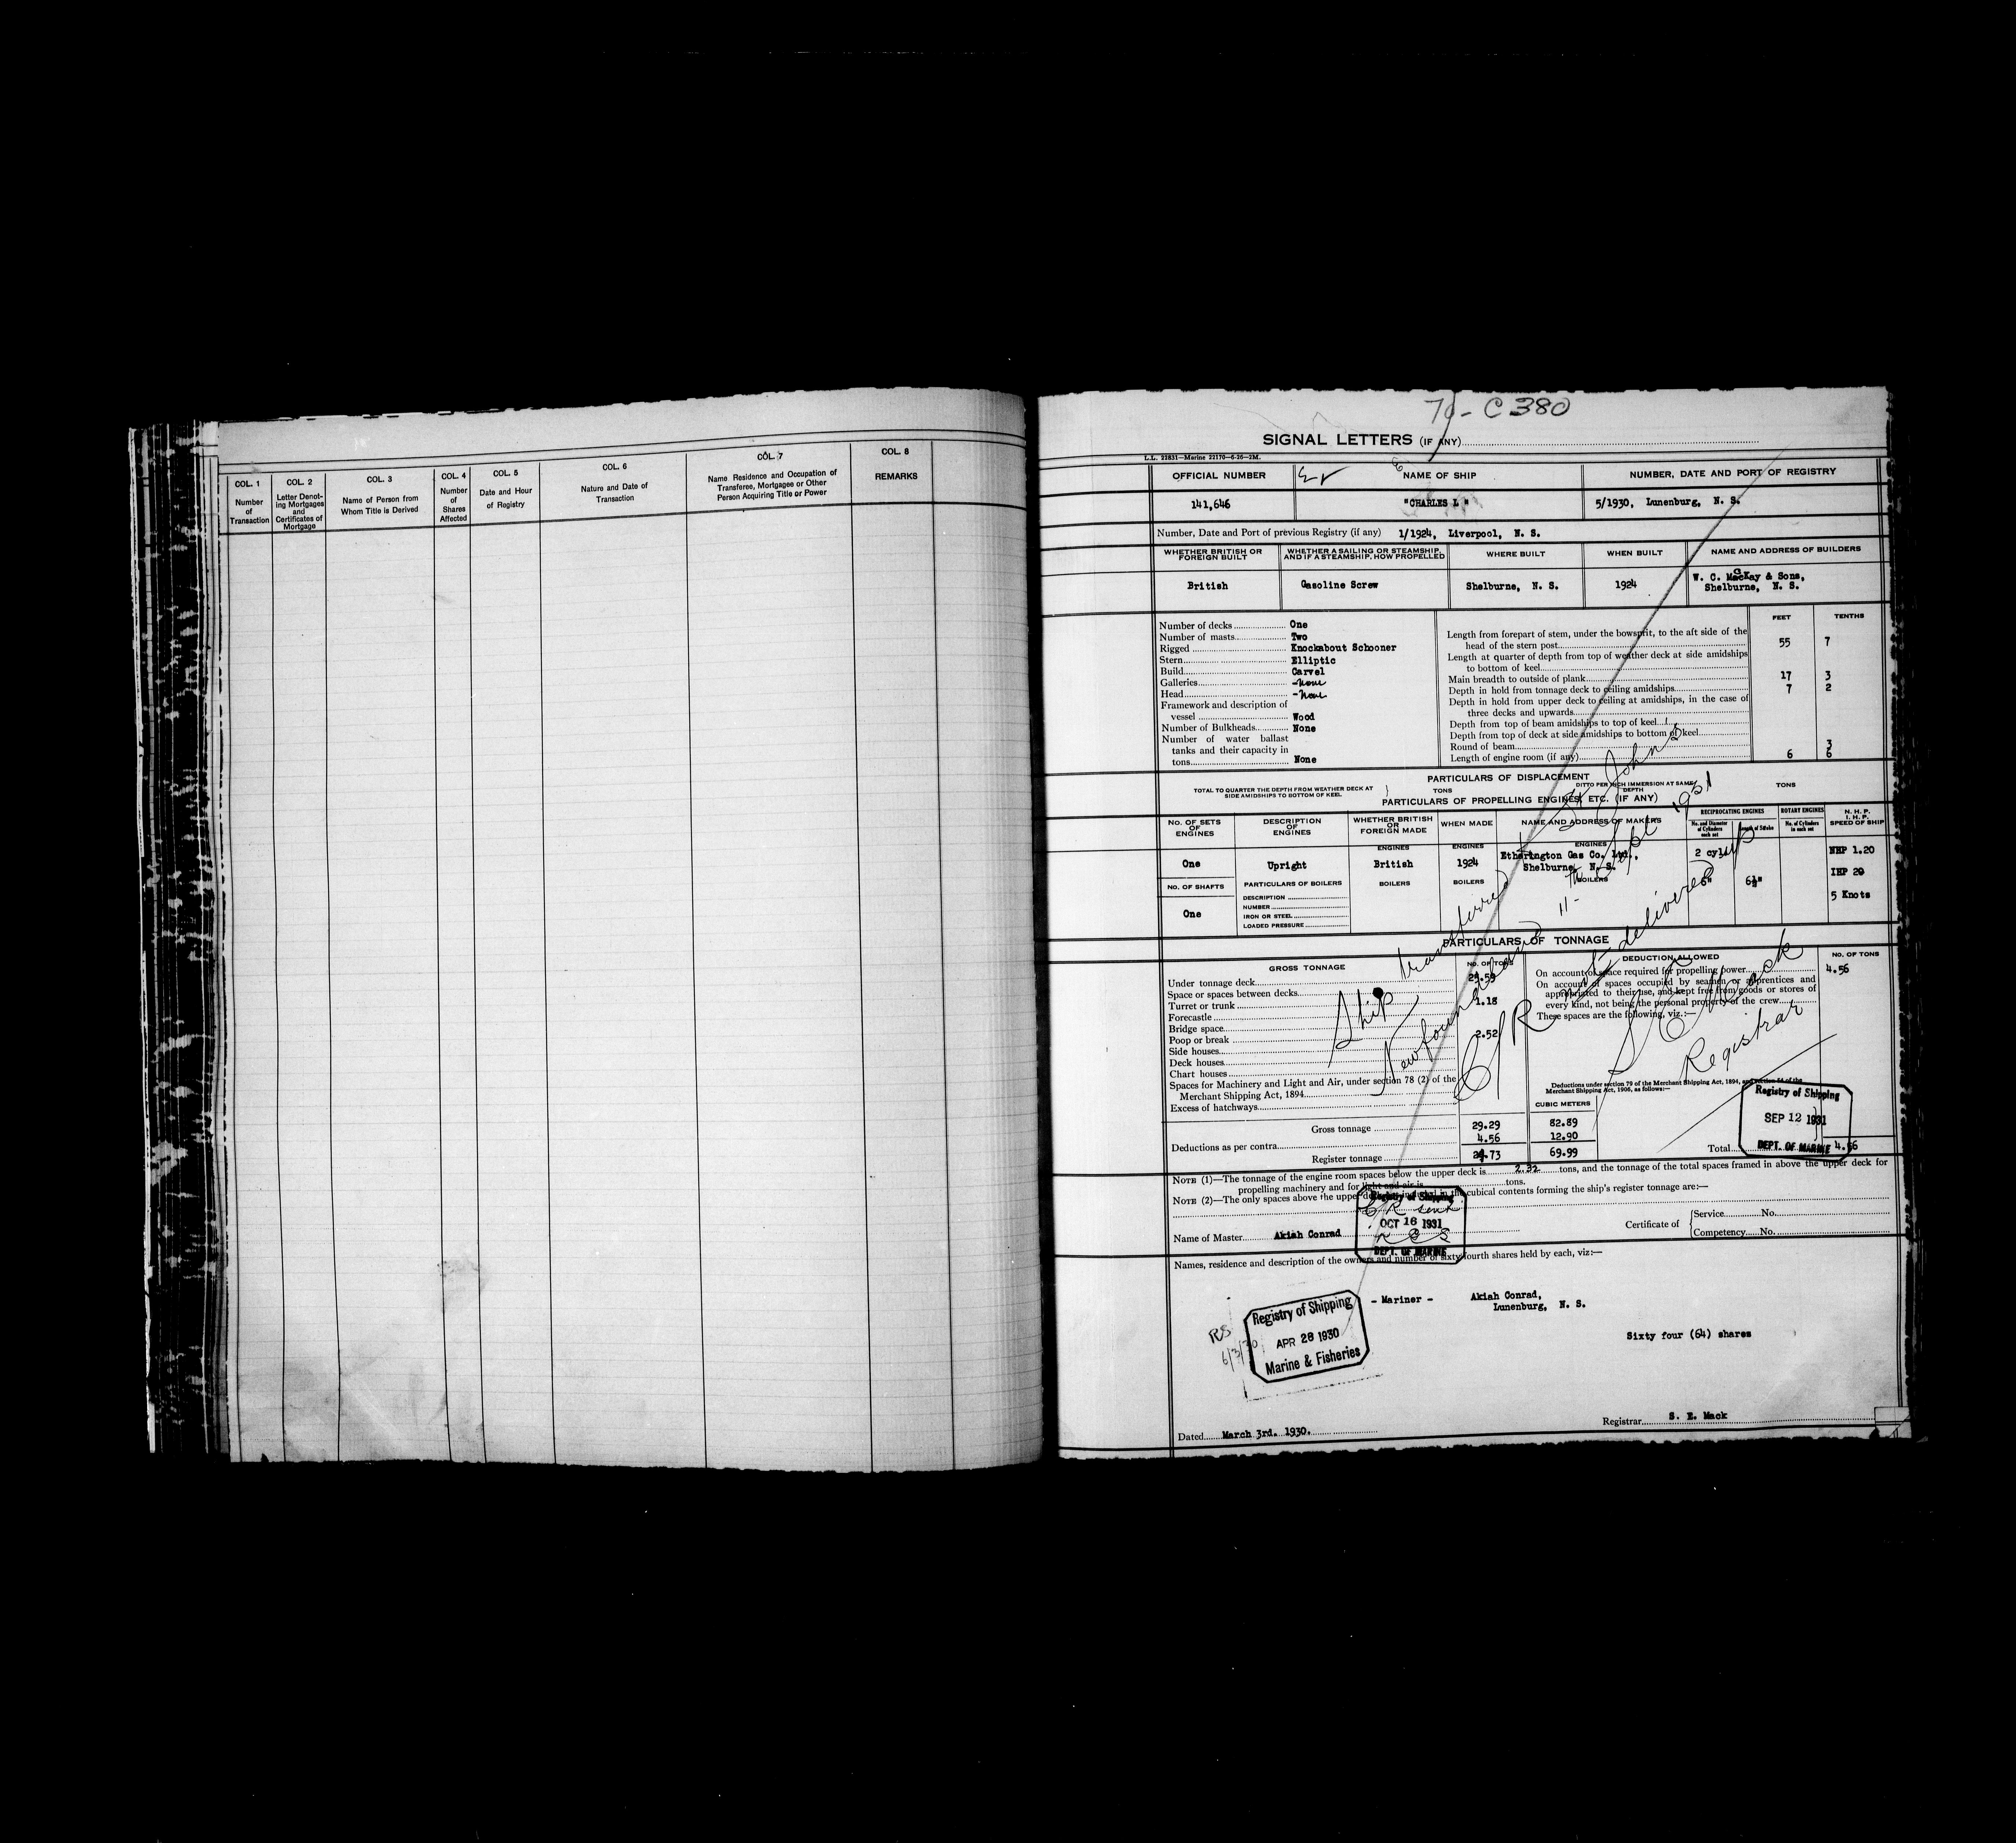 COL. 1
Number
of
Transaction
COL. 2
Letter Denot-
ing Mortgages
and
Certificates of
Mortgage
COL. 3
Name of Person from
Whom Title is Derived
COL. 4
Number
of
Shares
Affected
COL. 5
Date and Hour
of Registry
COL. 6
Nature and Date of
Transaction
COL. 7
Name Residence and Occupation of
Transferee, Mortgagee or Other
Person Acquiring Title or Power
COL. 8
REMARKS
70 - C 380
SIGNAL LETTERS (IF ANY)
L.L. 22831—Marine 22170—6-26—2M.
OFFICIAL NUMBER
NAME OF SHIP
NUMBER, DATE AND PORT OF REGISTRY
141,646
"CHARLES L"
5/1930, Lunenburg, N. S.
Number, Date and Port of previous Registry (if any) 1/1924, Liverpool, N. S.
WHETHER BRITISH OR
FOREIGN BUILT
WHETHER A SAILING OR STEAMSHIP,
AND IF A STEAMSHIP, HOW PROPELLED
WHERE BUILT
WHEN BUILT
NAME AND ADDRESS OF BUILDERS
British
Gasoline Screw
Shelburne, N. S.
1924
W. C. MacKay & Sons,
Shelburne, N. S.
Number of decks One
Number of masts Two
Rigged Knockabout Schooner
Stern Elliptic
Build Carvel
Galleries - none
Head - None
Framework and description of
vessel Wood
Number of Bulkheads None
Number of water ballast
tanks and their capacity in
tons None
FEET TENTHS
Length from forepart of stem, under the bowsprit, to the aft side of the
head of the stern post 55 7
Length at quarter of depth from top of weather deck at side amidships
to bottom of keel
Main breadth to outside of plank 17 3
Depth in hold from tonnage deck to ceiling amidships 7 2
Depth in hold from upper deck to ceiling at amidships, in the case of
three decks and upwards
Depth from top of beam amidships to top of keel
Depth from top of deck at side amidships to bottom of keel
Round of beam 3
Length of engine room (if any) 6 6
PARTICULARS OF DISPLACEMENT
TOTAL TO QUARTER THE DEPTH FROM WEATHER DECK AT
SIDE AMIDSHIPS TO BOTTOM OF KEEL
TONS
DITTO PER INCH IMMERSION AT SAME
DEPTH
TONS
PARTICULARS OF PROPELLING ENGINES, ETC. (IF ANY)
NO. OF SETS
OF
ENGINES
DESCRIPTION
OF
ENGINES
WHETHER BRITISH
OR
FOREIGN MADE
WHEN MADE
NAME AND ADDRESS OF MAKERS
RECIPROCATING ENGINES
No. and Diameter
of Cylinders
each set
Length of Stroke
ROTARY ENGINES
No. of Cylinders
in each set
N. H. P.
I. H. P.
SPEED OF SHIP
ENGINES
ENGINES
ENGINES
One
Upright
British
1924
Etherington Gas Co. Ltd.,
Shelburne, N. S.
2 cyl
6"
6½"
NHP 1.20
IHP 20
5 Knots
NO. OF SHAFTS
One
PARTICULARS OF BOILERS
DESCRIPTION
NUMBER
IRON OR STEEL
LOADED PRESSURE
BOILERS
BOILERS
BOILERS
PARTICULARS OF TONNAGE
GROSS TONNAGE
NO. OF TONS
Under tonnage deck 25.59
Space or spaces between decks
Turret or trunk 1.18
Forecastle
Bridge space
Poop or break 2.52
Side houses
Deck houses
Chart houses
Spaces for Machinery and Light and Air, under section 78 (2) of the
Merchant Shipping Act, 1894
Excess of hatchways
DEDUCTION ALLOWED
NO. OF TONS
On account of space required for propelling power 4.56
On account of spaces occupied by seamen or apprentices and
appropriated to their use, and kept free from goods or stores of
every kind, not being the personal property of the crew
These spaces are the following, viz.:—
Deductions under section 79 of the Merchant Shipping Act, 1894, and section 54 of the
Merchant Shipping Act, 1906, as follows:—
CUBIC METERS
Gross tonnage 29.29 82.89
Deductions as per contra 4.56 12.90
Register tonnage 24.73 69.99
Total 4.56
Ship transferred to St John's
Newfoundland 11th Sept 1931
C R not delivered up
S E Mack
Registrar
Registry of Shipping
SEP 12 1931
DEPT. OF MARINE
NOTE (1)—The tonnage of the engine room spaces below the upper deck is 2.32 tons, and the tonnage of the total spaces framed in above the upper deck for
propelling machinery and for light and air is tons.
NOTE (2)—The only spaces above the upper deck included in the cubical contents forming the ship's register tonnage are:—
Registry of Shipping
CR sent
OCT 16 1931
DEPT. OF MARINE
Name of Master Akiah Conrad
Certificate of
Service No.
Competency No.
Names, residence and description of the owners and number of sixty-fourth shares held by each, viz:—
- Mariner - Akiah Conrad,
Lunenburg, N. S.
Sixty four (64) shares
RS
6/3/30
Registry of Shipping
APR 28 1930
Marine & Fisheries
Dated March 3rd. 1930.
Registrar S. E. Mack